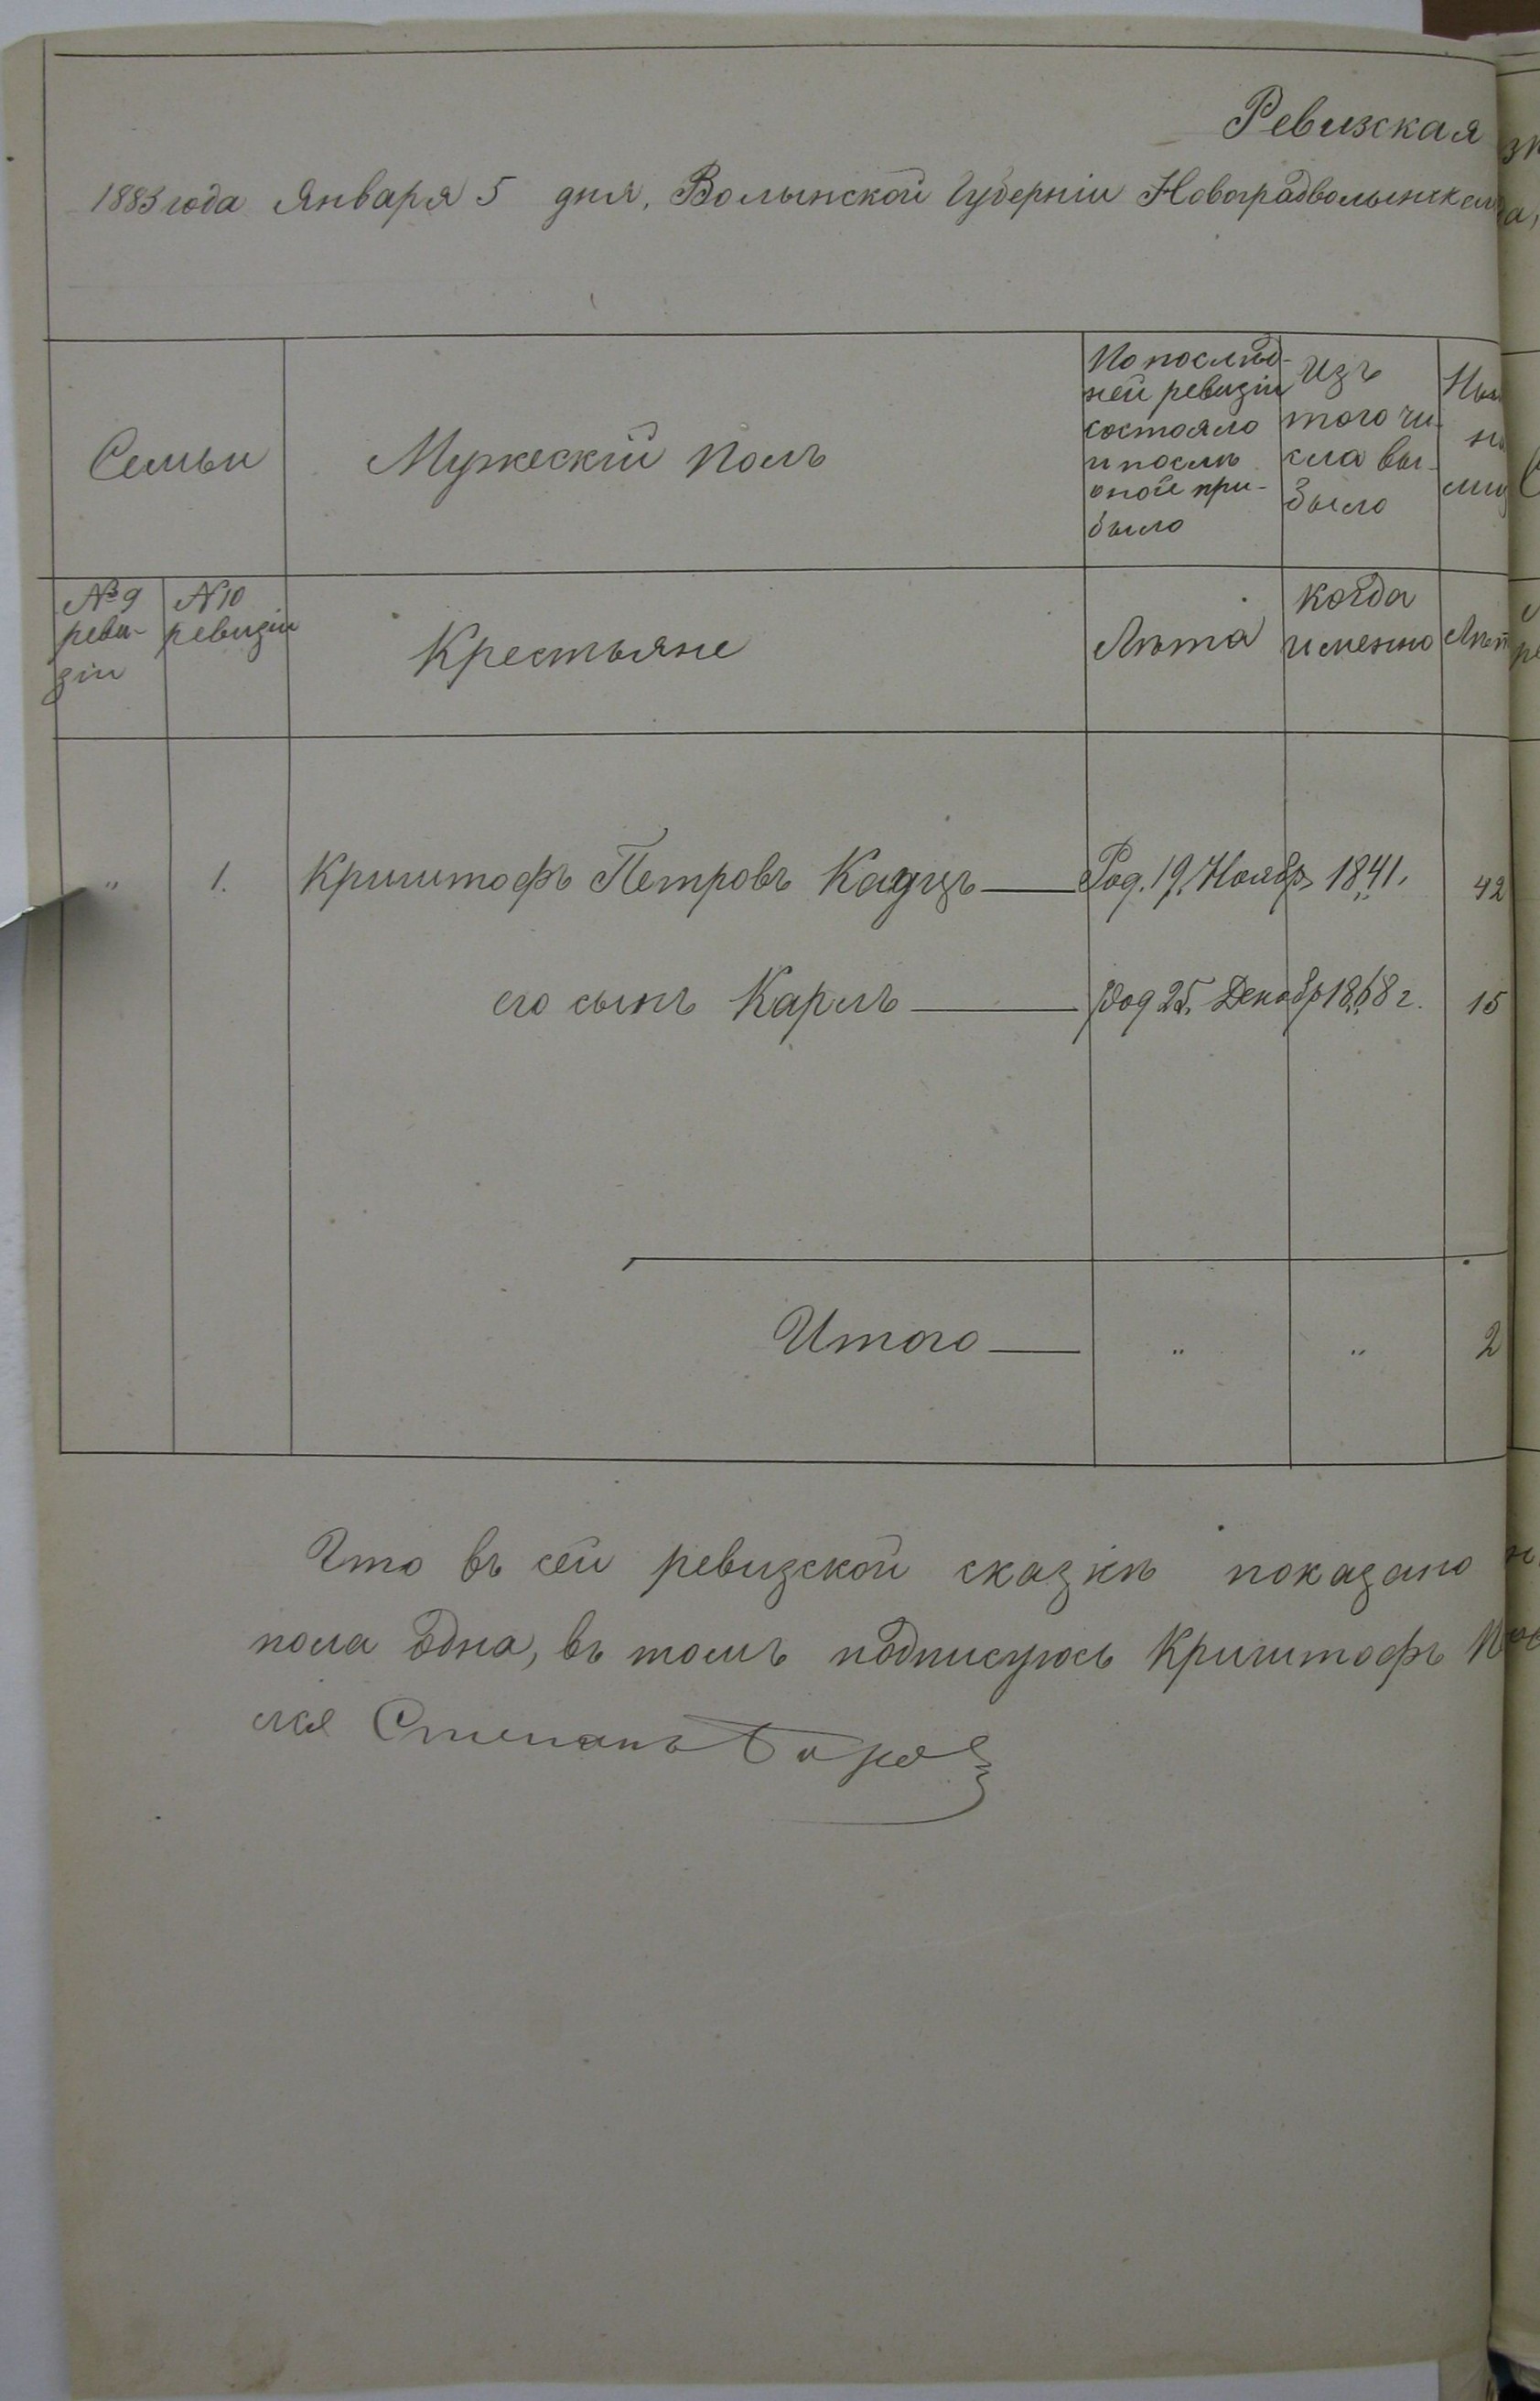 Ревизская
1883 года Января 5 дня, Волынской Губерніи Новоградволынска
Семьи
Мужескій полъ
По послѣд-
ней ревизіи
состояло
и послѣ
оной при-
было
Изъ
того чи-
сла вы-
было
№ 9
реви-
зіи
N 10
ревизіи
Крестьяне
Лѣта
когда
именно
Лѣт
" 1. Криштофъ Петровъ Кадцъ — Род. 19. Ноябр. 1841. 42
его сынъ Карлъ — Род 25. Декабр 1868 г. 15
Итого — " " 2
Что въ сей ревизской сказкѣ показано
пола одна, въ томъ подписуюсь Криштофъ
Степанъ